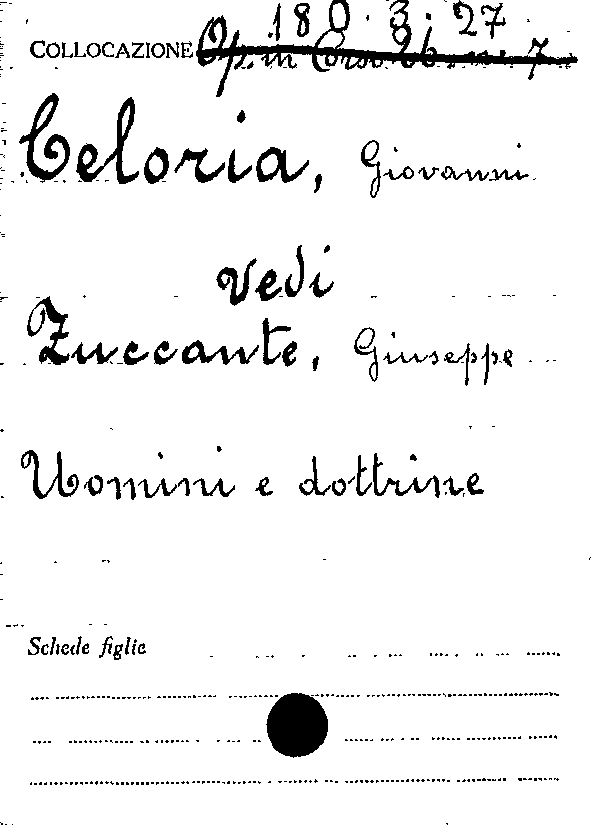 180.3.27
COLLOCAZIONE Op. in Corso 7
Celoria, Giovanni
vedi
Zuccante, Giuseppe
Uomini e dottrine
Schede figlie